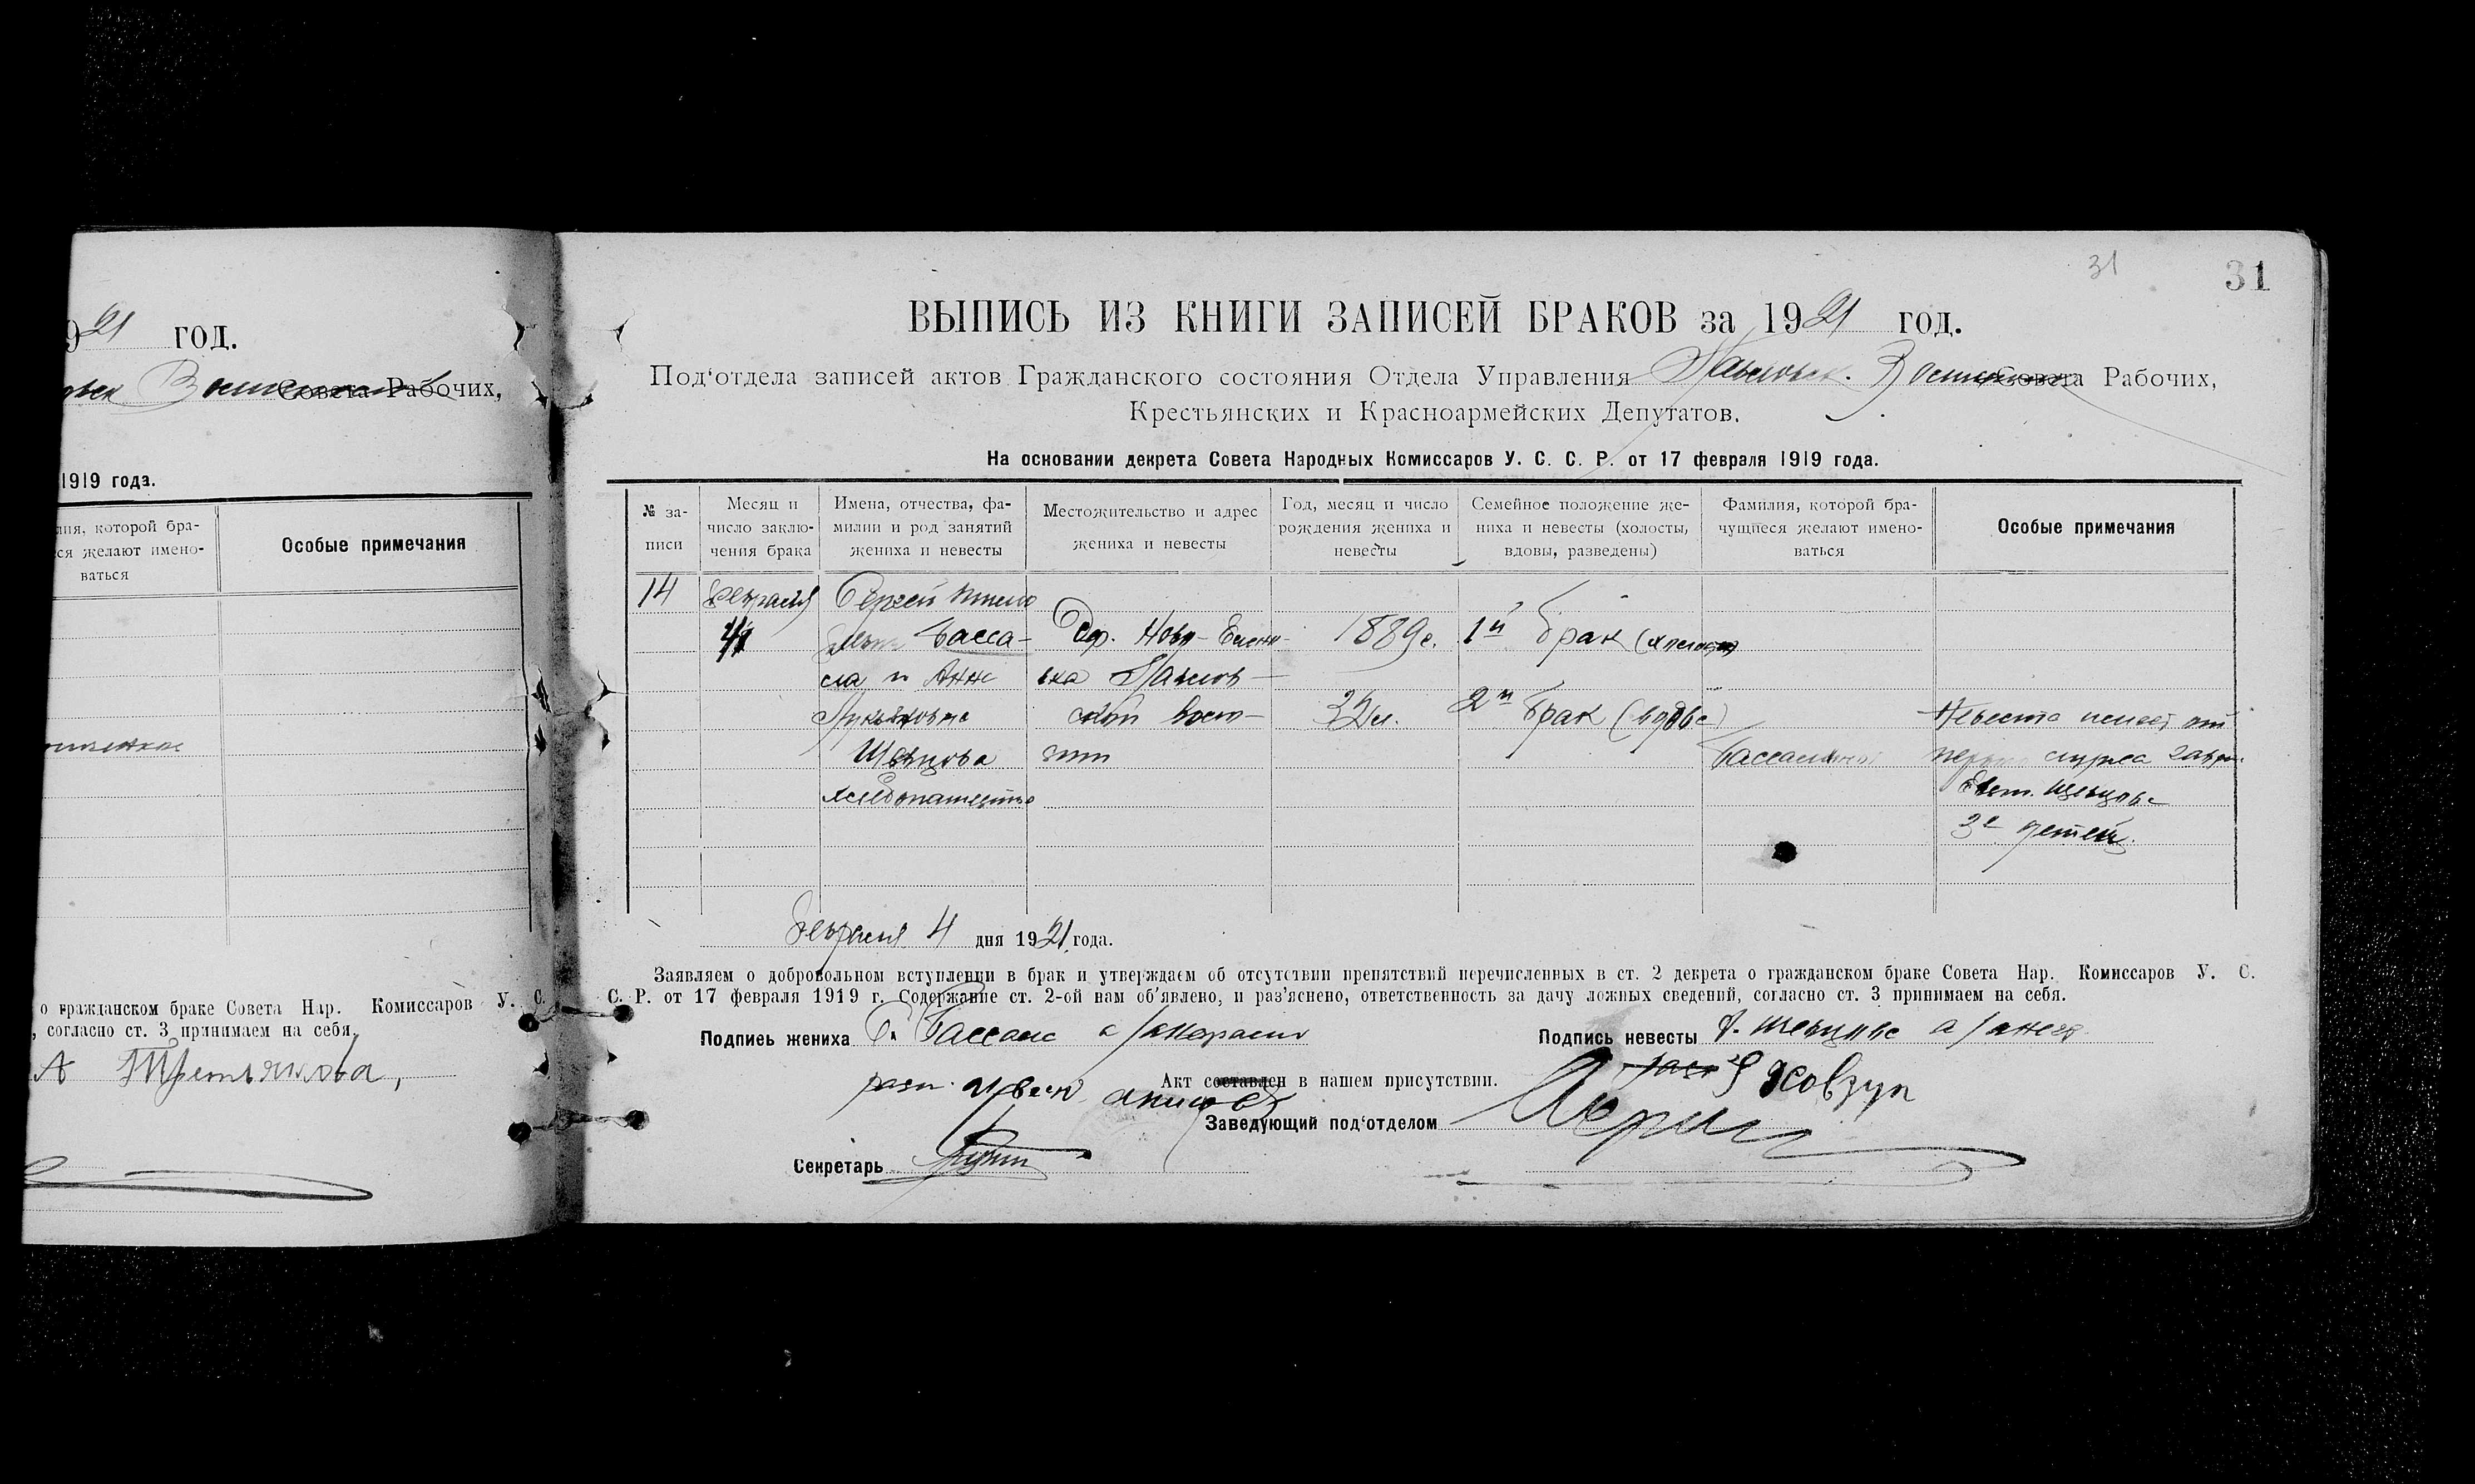 21 год.
Совета Рабочих,
1919 года.
лия, которой бра-
ся желают имено-
ваться
Особые примечания
о гражданском браке Совета Нар. Комиссаров У. С.
, согласно ст. 3 принимаем на себя.
А Третьякова,
31
31
ВЫПИСЬ ИЗ КНИГИ ЗАПИСЕЙ БРАКОВ за 1921 год.
Под‘отдела записей актов Гражданского состояния Отдела Управления Павловск. Совета Рабочих,
Крестьянских и Красноармейских Депутатов.
На основании декрета Совета Народных Комиссаров У. С. С. Р. от 17 февраля 1919 года.
№ за-
писи
Месяц и
число заклю-
чения брака
Имена, отчества, фа-
милии и род занятий
жениха и невесты
Местожительство и адрес
жениха и невесты
Год, месяц и число
рождения жениха и
невесты
Семейное положение же-
ниха и невесты (холосты,
вдовы, разведены)
Фамилия, которой бра-
чущиеся желают имено-
ваться
Особые примечания
14 Февраля Сергей
4 Басса- Дер. Ново- 1889г. 1й брак
и Анна Павлов-
Лукьяновна ской воло- 32л. 2й брак (вдова) Невеста имеет от
Шевцова сти
хлебопашество Шевцова
3е детей.
Февраля 4 дня 1921 года.
Заявляем о добровольном вступлении в брак и утверждаем об отсутствии препятствий перечисленных в ст. 2 декрета о гражданском браке Совета Нар. Комиссаров У. С.
С. Р. от 17 февраля 1919 г. Содержание ст. 2-ой нам об'явлено, и раз'яснено, ответственность за дачу ложных сведений, согласно ст. 3 принимаем на себя.
Подпись жениха С.
Подпись невесты А. Шевцова
Акт составлен в нашем присутствии.
Заведующий под‘отделом
Секретарь